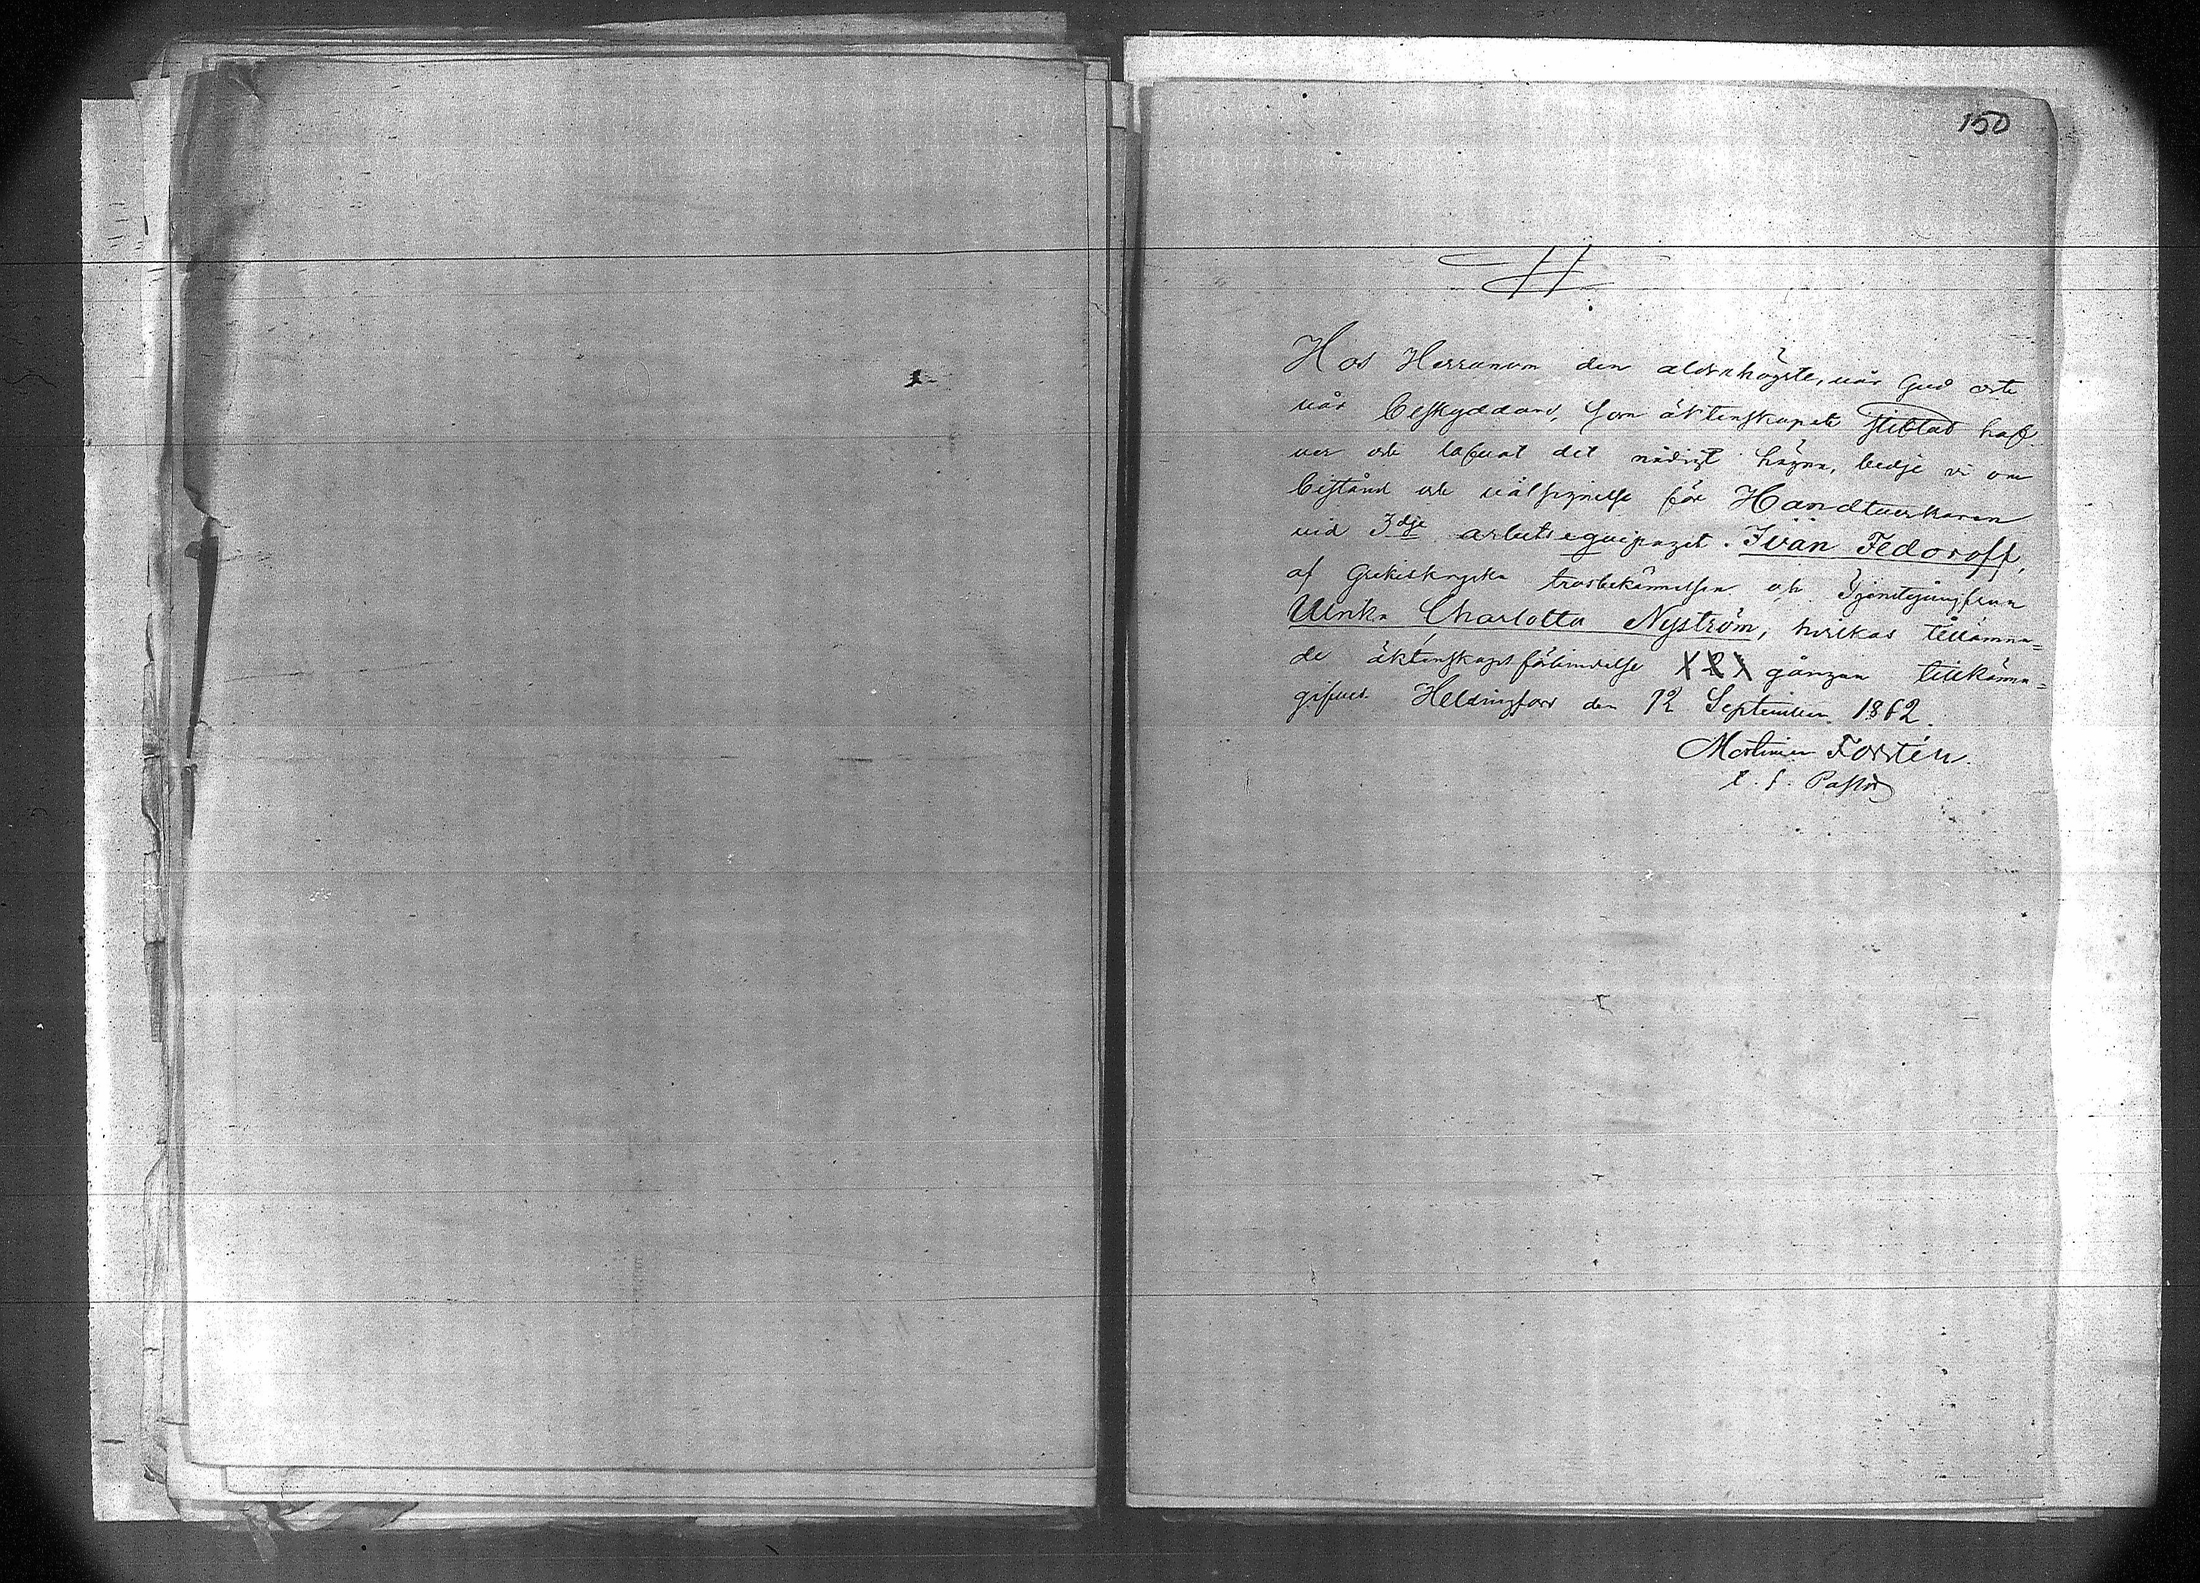 150
Hos Herranom den aldrahögste, vår Gud och
vår beskyddare, som äktenskapet stiktad haf
ver och lofvat det nådigt hägna, bedje vi om
bistånd och välsignelse för Handtverkaren
vid 3dje arbetsequipaget Ivan Fedoroff,
af Grekiskryska trosbekännelsen och Tjenstejungfrun
Ulrika Charlotta Nyström, hvilkas tillämna=
de äktenskapsförbindelse gången tillkänna=
gifves. Helsingfors den 12 September 1862.
Mortimer Forstén.
t. f. Pastor